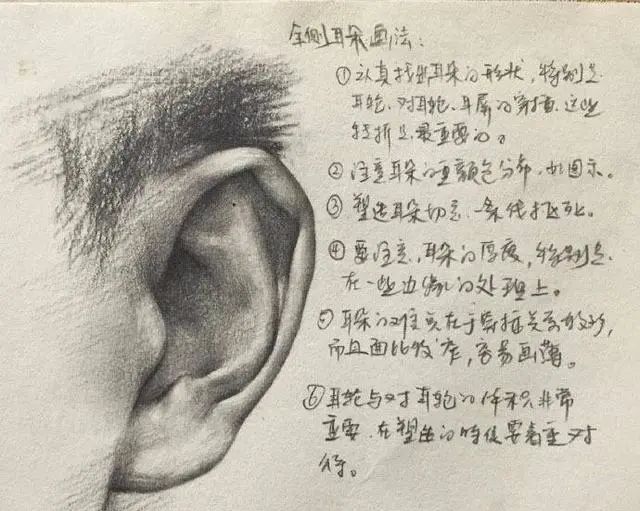 全侧耳朵画法：
①认真找出耳朵的形状，特别是
耳轮、对耳轮、耳屏的穿插，这些
转折是最重要的。
②注意耳朵的重颜色分布，如图示。
③塑造耳朵切忌一条线抠死。
④要注意，耳朵的厚度，特别是
在一些边缘的处理上。
⑤耳朵的难点在于穿插关系较多，
而且面比较窄，容易画薄。
⑥耳轮与对耳轮的体积非常
重要，在塑造的时候要着重对
待。